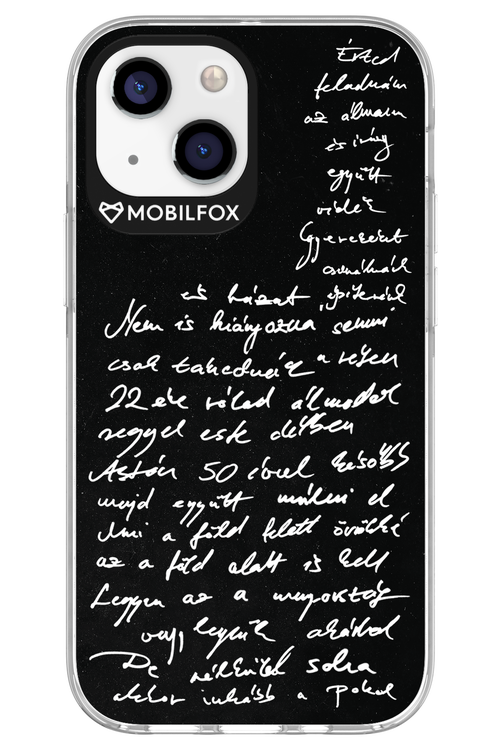 MOBILFOX
Érted
feladnám
az álmaim
és irány
együtt
vidék
Gyerekeket
csinálnánk
és házat építenék
Nem is hiányozna semmi
csak takednád a rétjen
22 éve rólad álmodok
reggel este délben
Aztán 50 évvel később
majd együtt múlni el
Ami a föld felett örökké
az a föld alatt is kell
Legyen az a mennyország
vagy legyünk akárhol
De nélküled soha
akkor inkább a Pokol